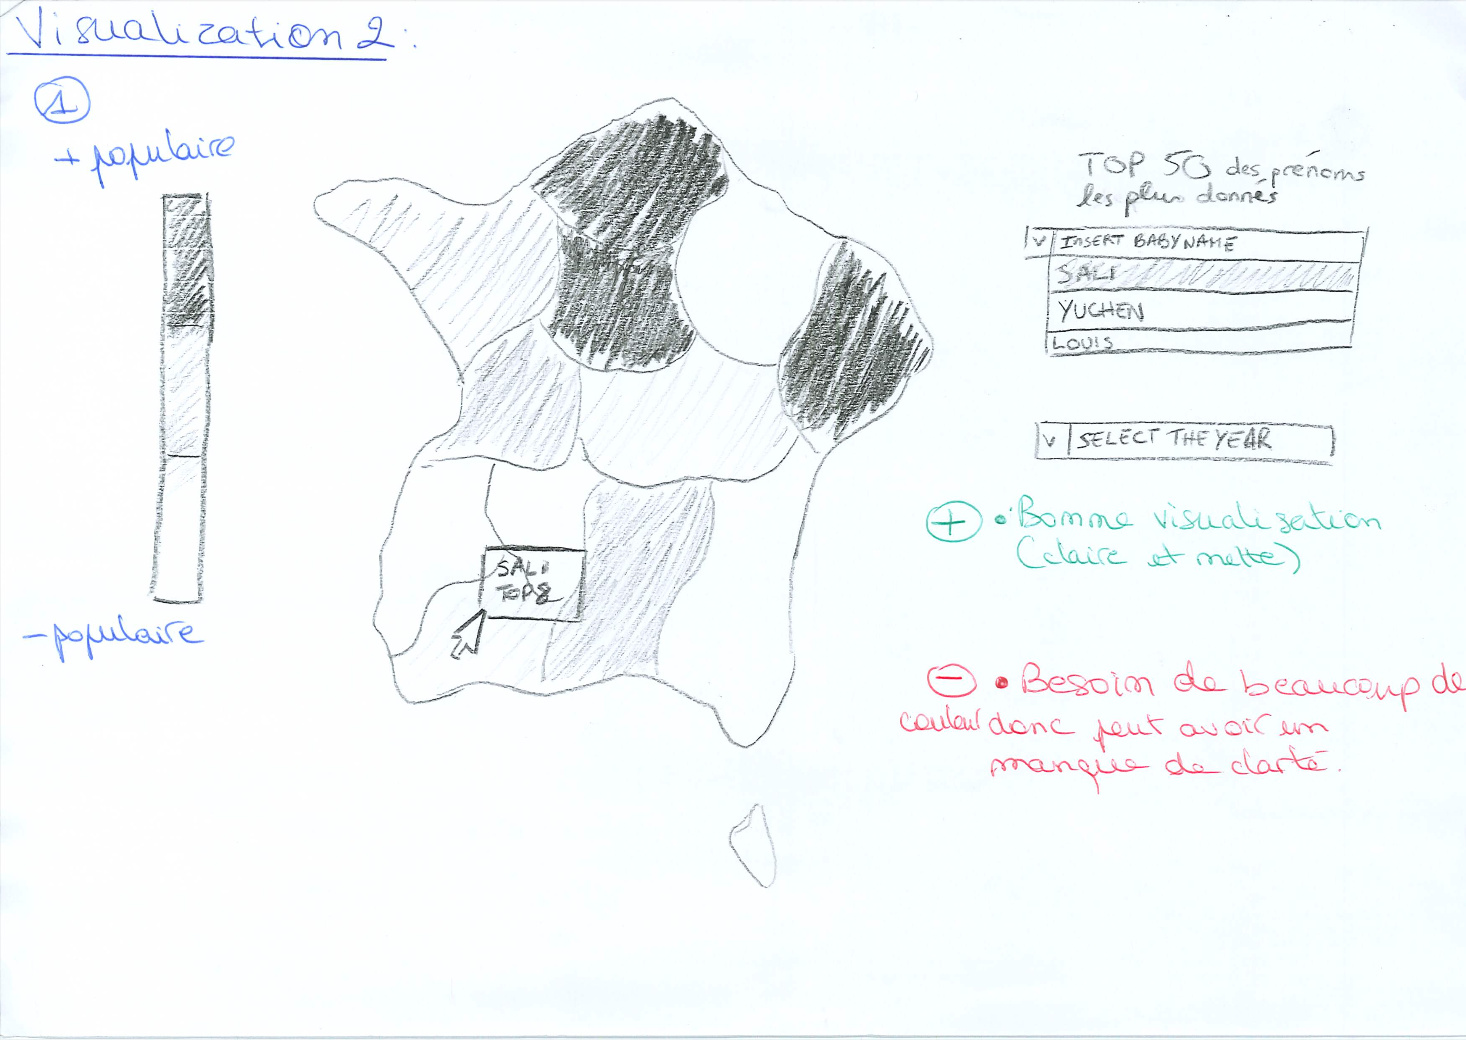 Visualization 2:
1
+ populaire
- populaire
SALI
TOP 8
TOP 50 des prénoms
les plus donnés
v INSERT BABYNAME
SALI
YUCHEN
LOUIS
v SELECT THE YEAR
+ • Bonne visualisation
(claire et nette)
- • Besoin de beaucoup de
couleur donc peut avoir un
manque de clarté.